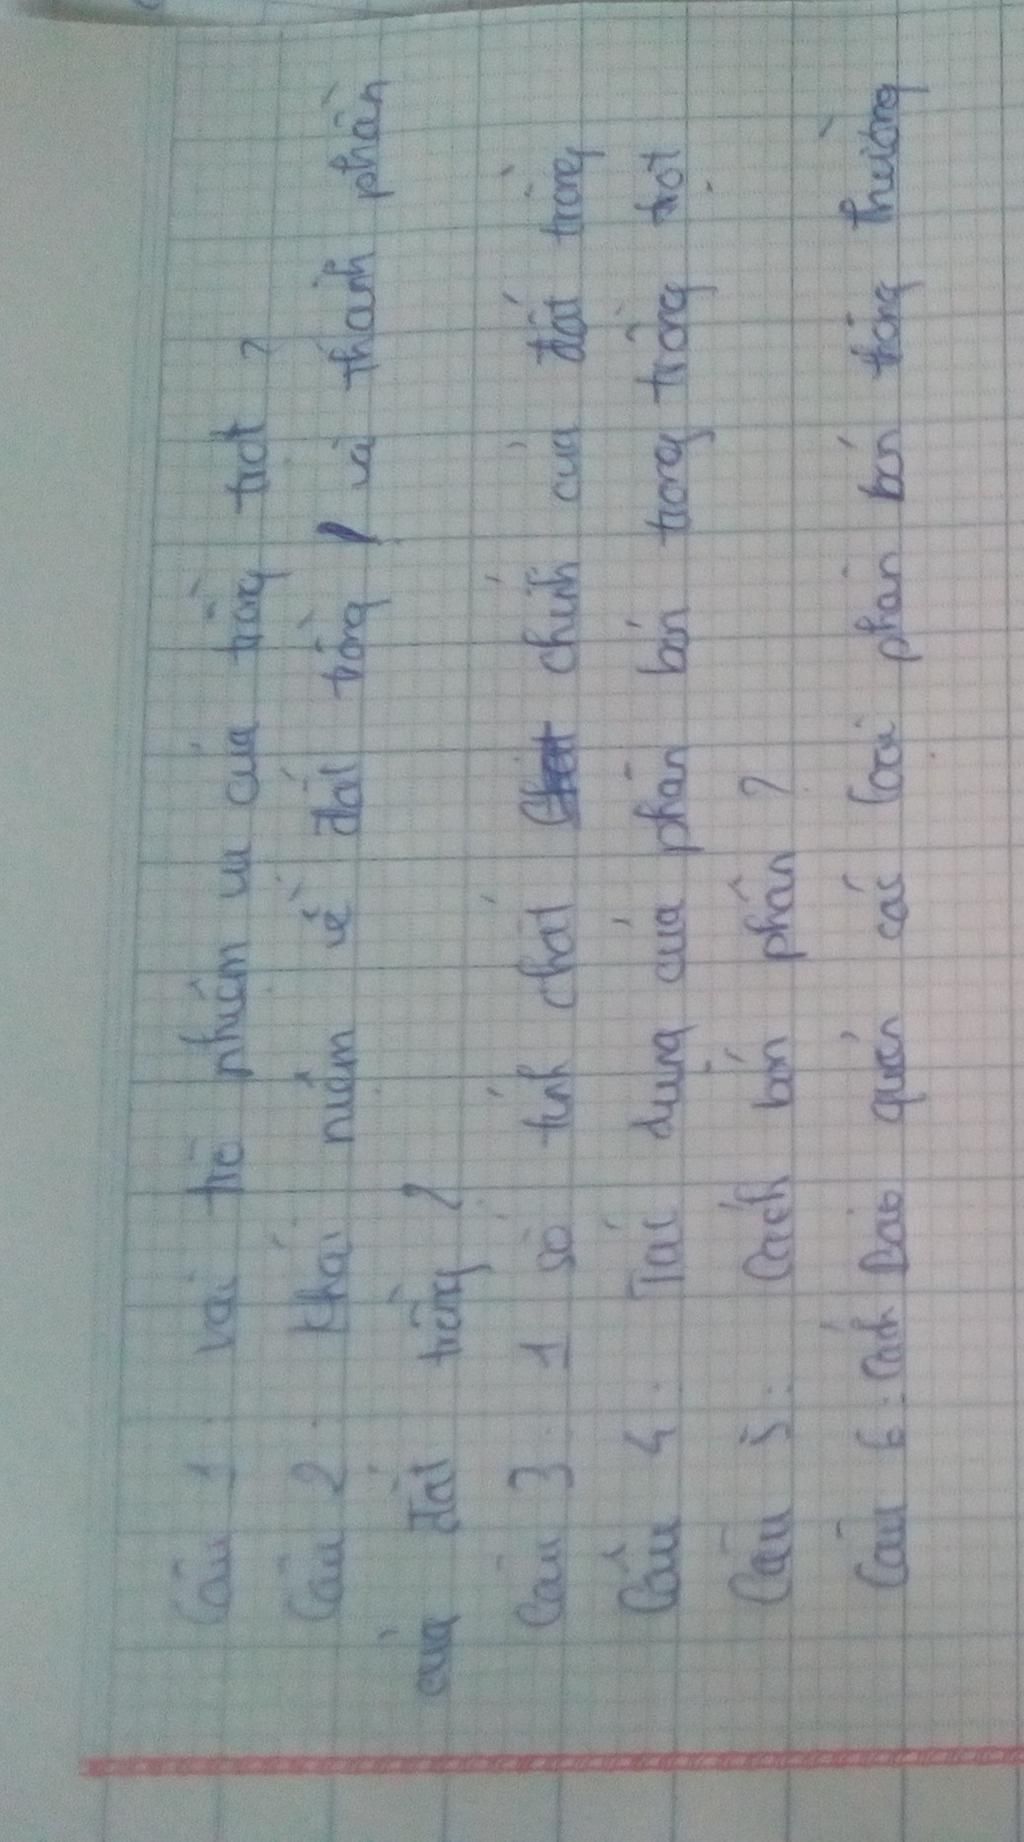 Câu 1. vai trò nhiệm vụ của trồng trọt ?
Câu 2. Khái niệm về đất trồng và thành phần
của đất trồng ?
Câu 3. 1 số tính chất chính của đất trồng
Câu 4. Tác dụng của phân bón trong trồng trọt
Câu 5: Cách bón phân ?
Câu 6: Cách Bảo quản các loại phân bón thông thường